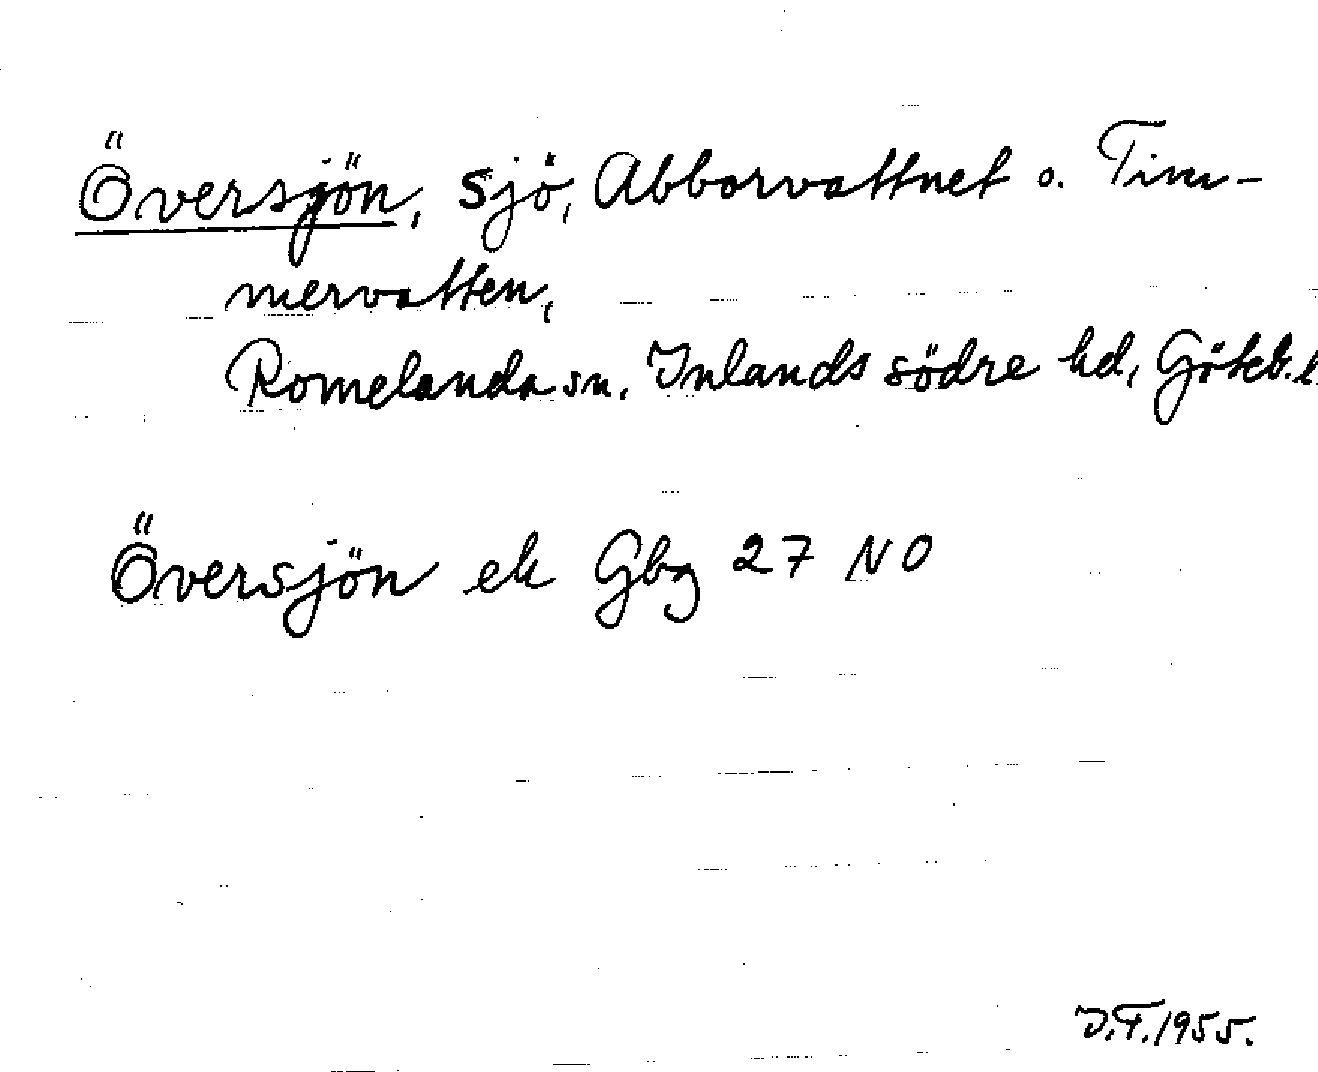 Översjön, sjö, Abborvattnet o. Tim-
mervatten,
Romelanda sn, Inlands södre hd, Göteb. l
Översjön ek Gbg 27 NO
J.F. 1955.